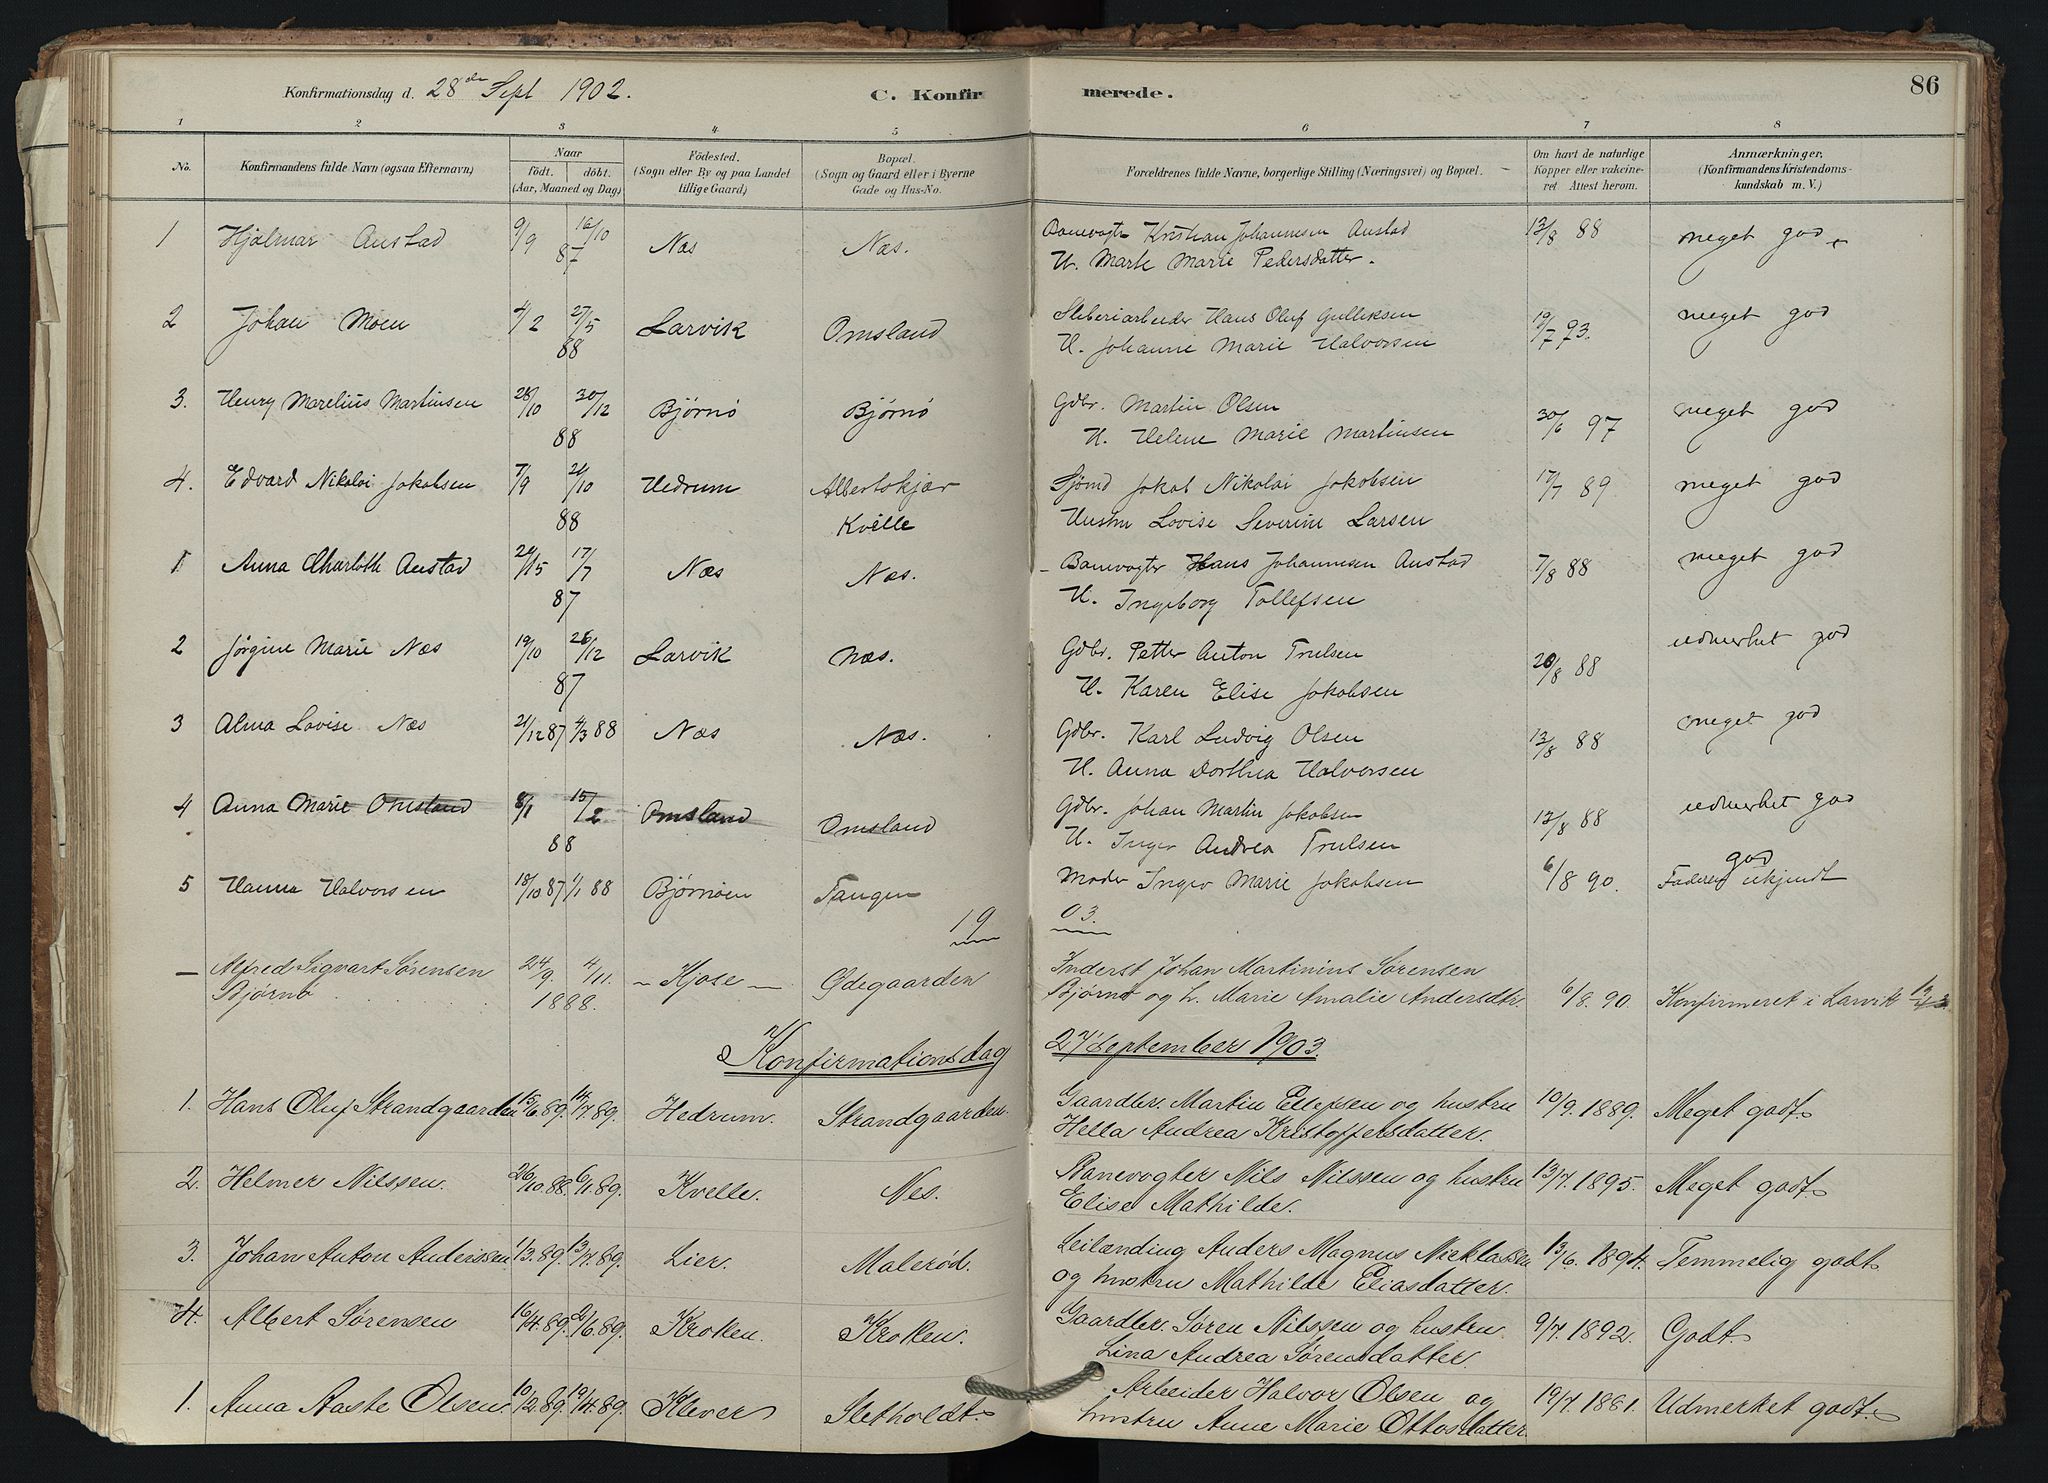 Konfirmationsdag d. 28de Sept 1902. C. Konfirmerede. 86
1 2 3 4 5 6 7 8
No. Konfirmandens fulde Navn (ogsaa Efternavn) Naar født. døbt. (Aar, Maaned og Dag) Fødested. (Sogn eller By og paa Landet tillige Gaard) Bopæl. (Sogn og Gaard eller i Byerne Gade og Hus-No. Forældrenes fulde Navne, borgerlige Stilling (Næringsvei) og Bopæl. Om havt de naturlige Kopper eller vakcineret Attest herom. Anmærkninger. (Konfirmandens Kristendomskundskab m. V.)
1 Hjalmar Anstad 9/9 16/10 87 Næs Næs. Banevogter Kristian Johannesen Anstad 13/8 88 meget god
H. Marie Pedersdatter.
2 Johan Moen 4/2 27/5 88 Larvik Omsland Sliberiarbeider Hans Oluf Gulliksen 19/7 93. meget god
H. Johanne Marie Halvorsen
3. Henry Marelius Martinsen 28/10 30/12 88 Bjørnø Bjørnø Gdbr. Martin Olsen 30/6 97 meget god
H. Helene Marie Martinsen
4. Edvard Nikolai Jakobsen 7/9 21/10 88 Hedrum Albertskjær Kvelle Sjømd Jakob Nikolai Jakobsen 17/7 89 meget god
Hustru Lovise Severine Larsen
1 Anna Charloth Anstad 17/7 87 Næs Næs. Banevogter Hans Johannesen Anstad 7/8 88 meget god
H. Ingeborg Tollefsen
2 Jørgine Marie Næs 19/10 26/12 87 Larvik Næs. Gdbr. Petter Anton Trulsen 20/8 88 udmerket god
H. Karen Elise Jakobsen
3 Alma Lovise Næs 21/12 87 4/3 88 Næs Næs. Gdbr. Karl Ludvig Olsen 13/8 88 meget god
H. Anna Dorthea Halvorsen
4 Anna Marie Omsland 8/1 15/2 88 Omsland Omsland Gdbr. Johan Martin Jakobsen 12/8 88 udmerket god
H. Inger Andrea Trulsen
5 Hanna Halvorsen 18/10 87 1/1 88 Bjørnøen Tangen Moder Inger Marie Jakobsen 6/8 90. god Faderen ukjendt
19 03.
— Alfred Sigvart Sørensen Bjørnø 24/9. 4/11. 1888. – Kjose – Ødegaarden Inderst Johan Martinius Sørensen
Bjørnø og h. Marie Amalie Andersdtr. 6/8. 90. Konfirmeret i Larvik
Konfirmationsdag 27 September 1903.
1. Hans Oluf Strandgaarden 15/6. 89. 14/7. 89. Hedrum. Strandgaarden. Gaardbr. Martin Ellefsen og hustru 10/9. 1889. Meget godt.
Hella Andrea Kristoffersdatter.
2. Helmer Nilssen. 26/10. 88. 6/1. 89. Kvelle. Nes. Banevogter Nils Nilssen og hustru 13/7. 1895. Meget godt.
Elise Mathilde.
3. Johan Anton Anderssen. 1/3. 89. 13/4. 89. Lier. Malerød. Leilænding Anders Magnus Nicklassen 13/6. 1894. Temmelig godt.
og hustru Mathilde Eliasdatter.
4. Albert Sørensen 16/4. 89. 2/6. 89. Kroken. Kroken. Gaardbr. Søren Nilssen og hustru 9/7. 1892. Godt.
Lina Andrea Sørensdatter.
1. Anna Aaste Olsen. 10/2. 89. 19/4. 89. Klever Sletholdt. Arbeider Halvor Olsen og 19/7. 1881. Udmerket godt.
hustru Anne Marie Ottosdatter